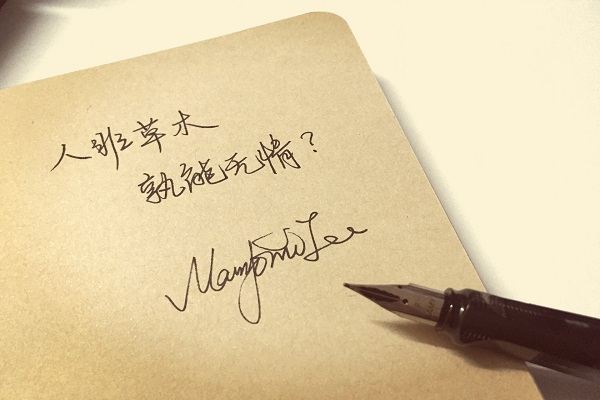 人非草木
孰能无情？